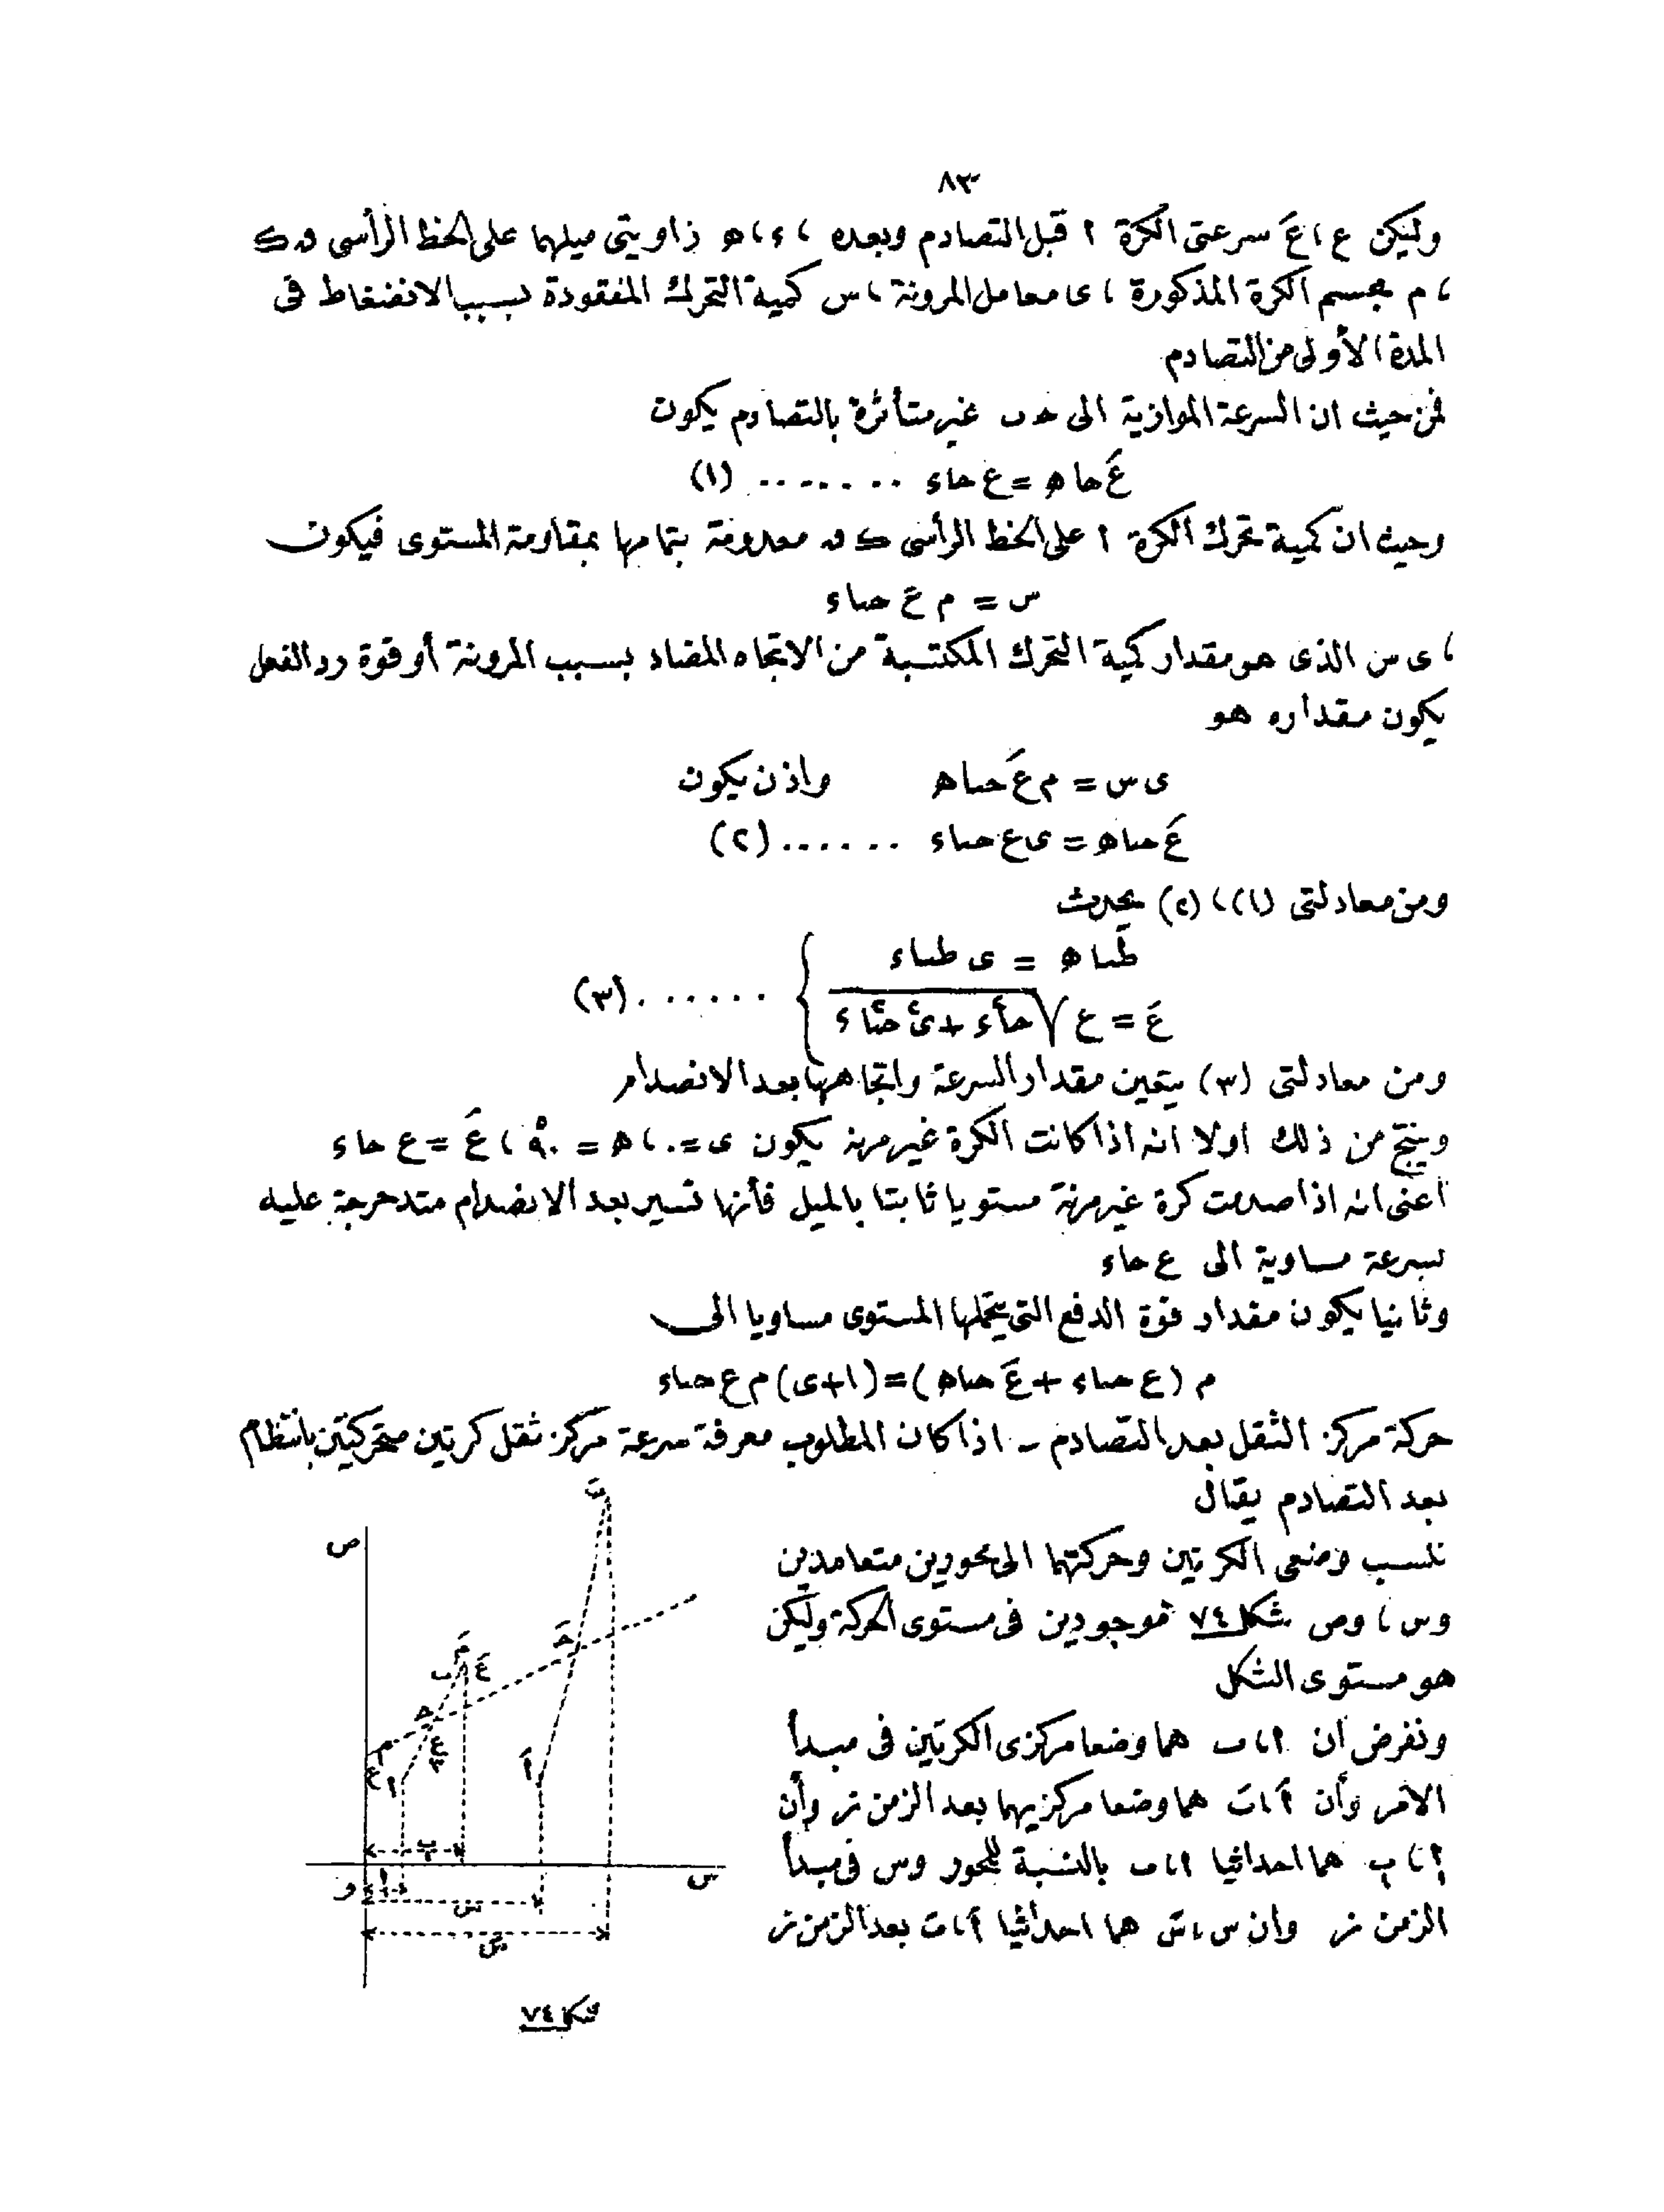 ٨٣
وليكن ع ، عَ سرعتى الكرة ا قبل التصادم وبعده ، ء ، ه زاويتى ميلهما على الخط الرأسى ق ك
، م مجسم الكرة المذكورة ، ى معامل المرونة ، س كمية التحرك المفقودة بسبب الانضغاط فى
المدة الأولى من التصادم
فمن حيث ان السرعة الموازية الى حـ ب غير متأثرة بالتصادم يكون
عَ حا ه = ع حا ء ....... (١)
وحيث ان كمية تحرك الكرة ا على الخط الرأسى ك ق معدومة بتمامها بمقاومة المستوى فيكون
س = م ع حتا ء
، ى س الذى هو مقدار كمية التحرك المكتسبة من الاتجاه المضاد بسبب المرونة أو قوة رد الفعل
يكون مقداره هو
ى س = م عَ حتا ه واذن يكون
عَ حتا ه = ى ع حتا ء ...... (٢)
ومن معادلتى (١) ، (٢) يحدث
طتا ه = ى طتا ء
عَ = ع √ حا٢ء + ى٢ حتا٢ ء } ...... (٣)
ومن معادلتى (٣) يتعين مقدار السرعة واتجاهها بعد الانصدام
وينتج من ذلك اولا انه اذا كانت الكرة غير مرنه يكون ى = ٠ ، ه = ٩٠° ، عَ = ع حا ء
اعنى انه اذا صدمت كرة غير مرنة مستويا ثابتا بالميل فأنها تسير بعد الانصدام متدحرجة عليه
بسرعة مساوية الى ع حا ء
وثانيا يكون مقدار قوة الدفع التى يتحملها المستوى مساويا الى
م (ع حتا ء + عَ حتا ه) = (١+ى) م ع حتا ء
حركة مركز الثقل بعد التصادم ـ اذا كان المطلوب معرفة سرعة مركز ثقل كرتين متحركتين بانتظام
بعد التصادم يقال
ننسب وضعى الكرتين وحركتهما الى محورين متعامدين
وس ، وص شكل ٧٤ موجودين فى مستوى الحركة وليكن
هو مستوى الشكل
ونفرض ان ا ، ب هما وضعا مركزى الكرتين فى مبدأ
الأمر وأن اَ ، بَ هما وضعا مركزيهما بعد الزمن ز وأن
ا ، ب هما احداثيا ا ، ب بالنسبة للمحور وس فى مبدأ
الزمن ز وان س ، سَ هما احداثيا اَ ، بَ بعد الزمن ز
ص
س
و
شكل ٧٤